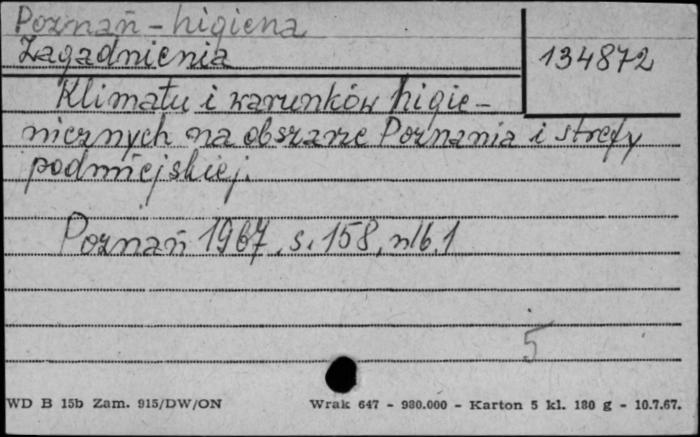 Poznań - higiena
Zagadnienia
134872
Klimatu i warunków higie-
nicznych na obszarze Poznania i strefy
podmiejskiej.
Poznań 1967, s. 158, nlb. 1
5
WD B 15b Zam. 915/DW/ON
Wrak 647 - 980.000 - Karton 5 kl. 180 g - 10.7.67.